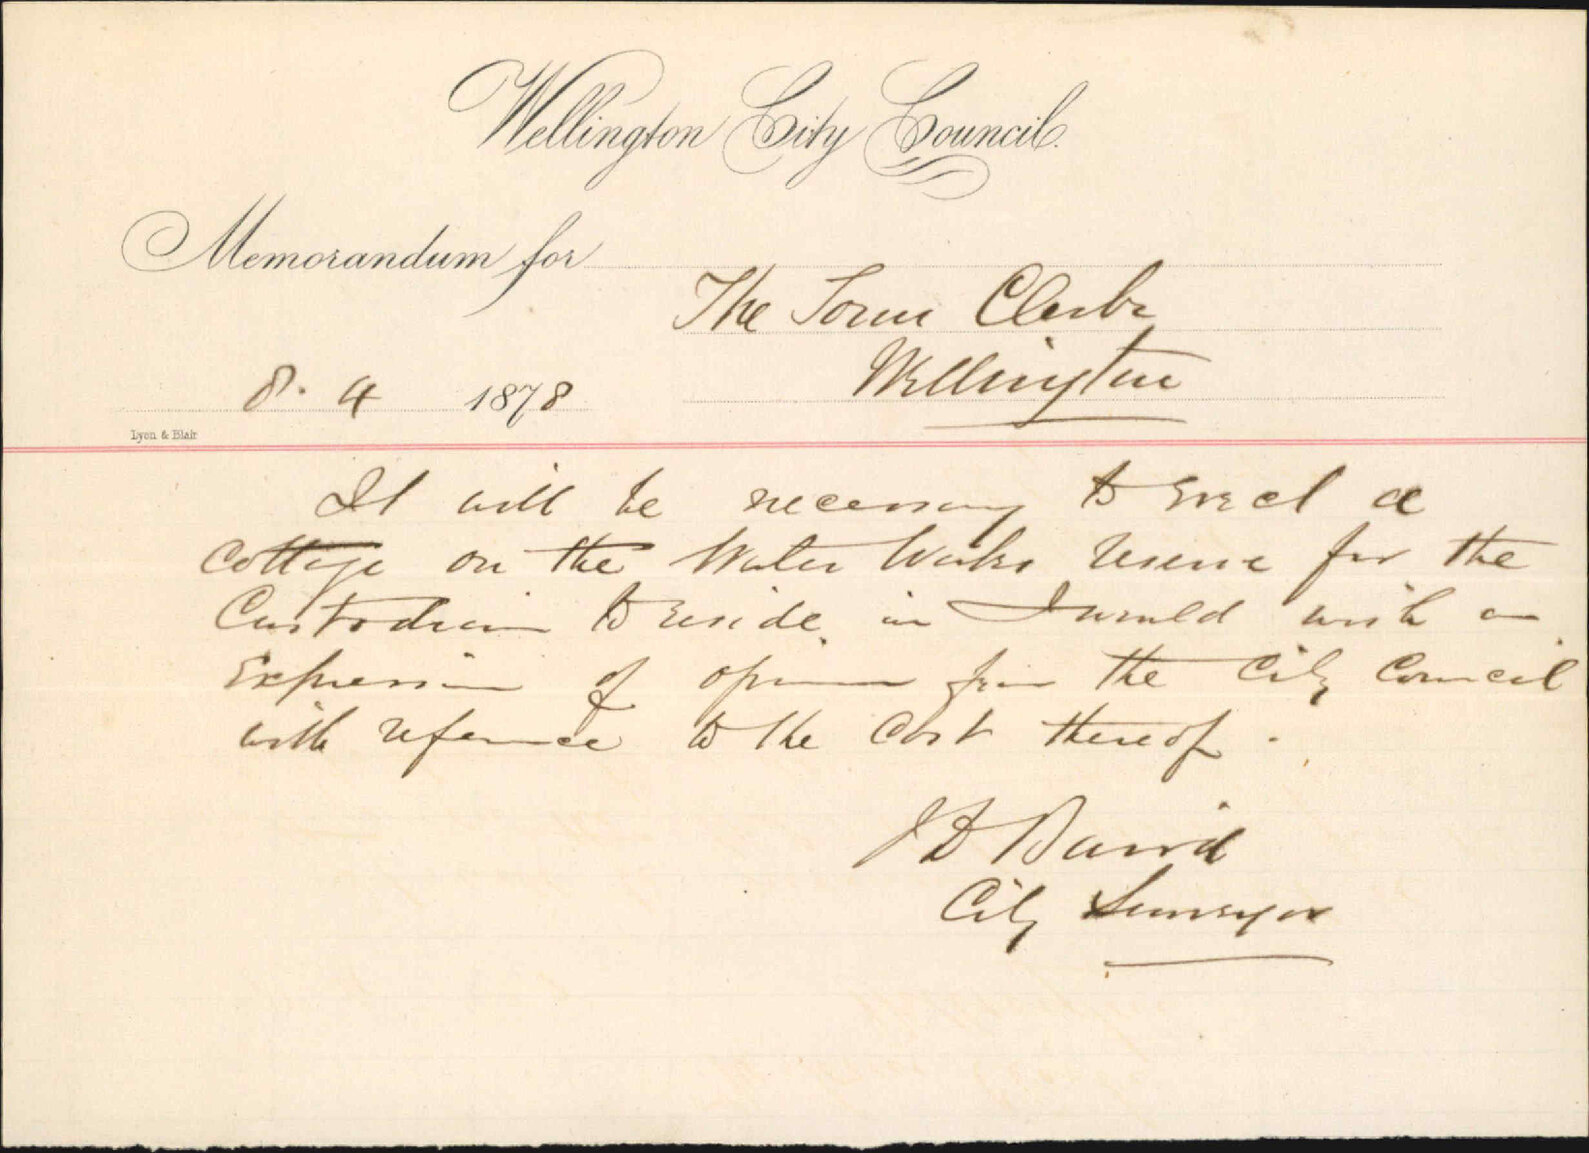 Wellington City Council.
Memorandum for
The Town Clerk
Wellington
8. 4 1878
Lyon & Blair
It will be necessary to erect a
Cottage on the Water Works reserve for the
Custodian to reside in I would wish an
Expression of opinion from the City Council
with reference to the Cost thereof.
J D Baird
City Surveyor